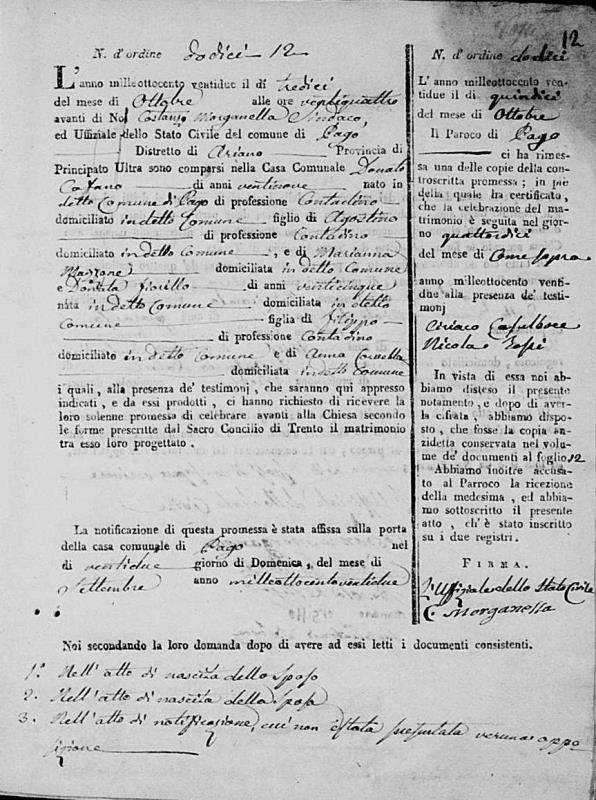 12
N. d'ordine dodici 12
L'anno milleottocento ventidue il dì tredici
del mese di Ottobre alle ore ventiquattro
avanti di Noi Costanzo Morganella Sindaco,
ed Uffiziale dello Stato Civile del comune di Pago
Distretto di Ariano Provincia di
Principato Ultra sono comparsi nella Casa Comunale Donato
di anni ventinove nato in
detto Comune di Pago di professione Contadino
domiciliato in detto Comune figlio di Agostino
di professione Contadino
domiciliato in detto Comune, e di Marianna
domiciliata in detto Comune
e Donata Fiorillo di anni venticinque
nata in detto Comune domiciliata in detto
Comune figlia di Filippo
di professione Contadino
domiciliato in detto Comune e di Anna
domiciliata in detto Comune
i quali, alla presenza de' testimonj, che saranno qui appresso
indicati, e da essi prodotti, ci hanno richiesto di ricevere la
loro solenne promessa di celebrare avanti alla Chiesa secondo
le forme prescritte dal Sacro Concilio di Trento il matrimonio
tra esso loro progettato.
La notificazione di questa promessa è stata affissa sulla porta
della casa comunale di Pago nel
dì ventidue giorno di Domenica, del mese di
Settembre anno milleottocentoventidue
N. d'ordine dodici
L' anno milleottocento ven-
tidue il di quindici
del mese di Ottobre
Il Paroco di Pago
ci ha rimes-
sa una delle copie della con-
troscritta promessa; in piè
della quale ha certificato,
che la celebrazione del ma-
trimonio è seguita nel gior-
no quattordici
del mese di Come sopra
anno milleottocento venti-
due alla presenza de' testi-
monj
Ciriaco
Nicola
In vista di essa noi ab-
biamo disteso il presente
notamento, e dopo di aver-
la cifrata, abbiamo dispo-
sto, che fosse la copia an-
zidetta conservata nel volu-
me de' documenti al foglio 12
Abbiamo inoltre accusa-
to al Parroco la ricezione
della medesima, ed abbia-
mo sottoscritto il presente
atto, ch'è stato inscritto
su i due registri.
FIRMA.
L'Uffiziale dello Stato Civile
C. Morganella
Noi secondando la loro domanda dopo di avere ad essi letti i documenti consistenti.
1.° Nell'atto di nascita dello sposo
2. Nell'atto di nascita della sposa
3. Nell'atto di notificazione, cui non è stata presentata veruna oppo
sizione